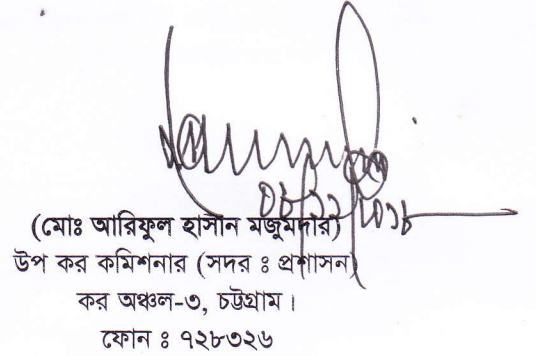 (মোঃ আরিফুল হাসান মজুমদার)
উপ কর কমিশনার (সদর ঃ প্রশাসন)
কর অঞ্চল-৩, চট্টগ্রাম।
ফোন ঃ ৭২৮৩২৬